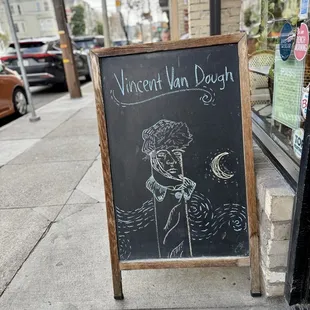 Vincent Van Dough